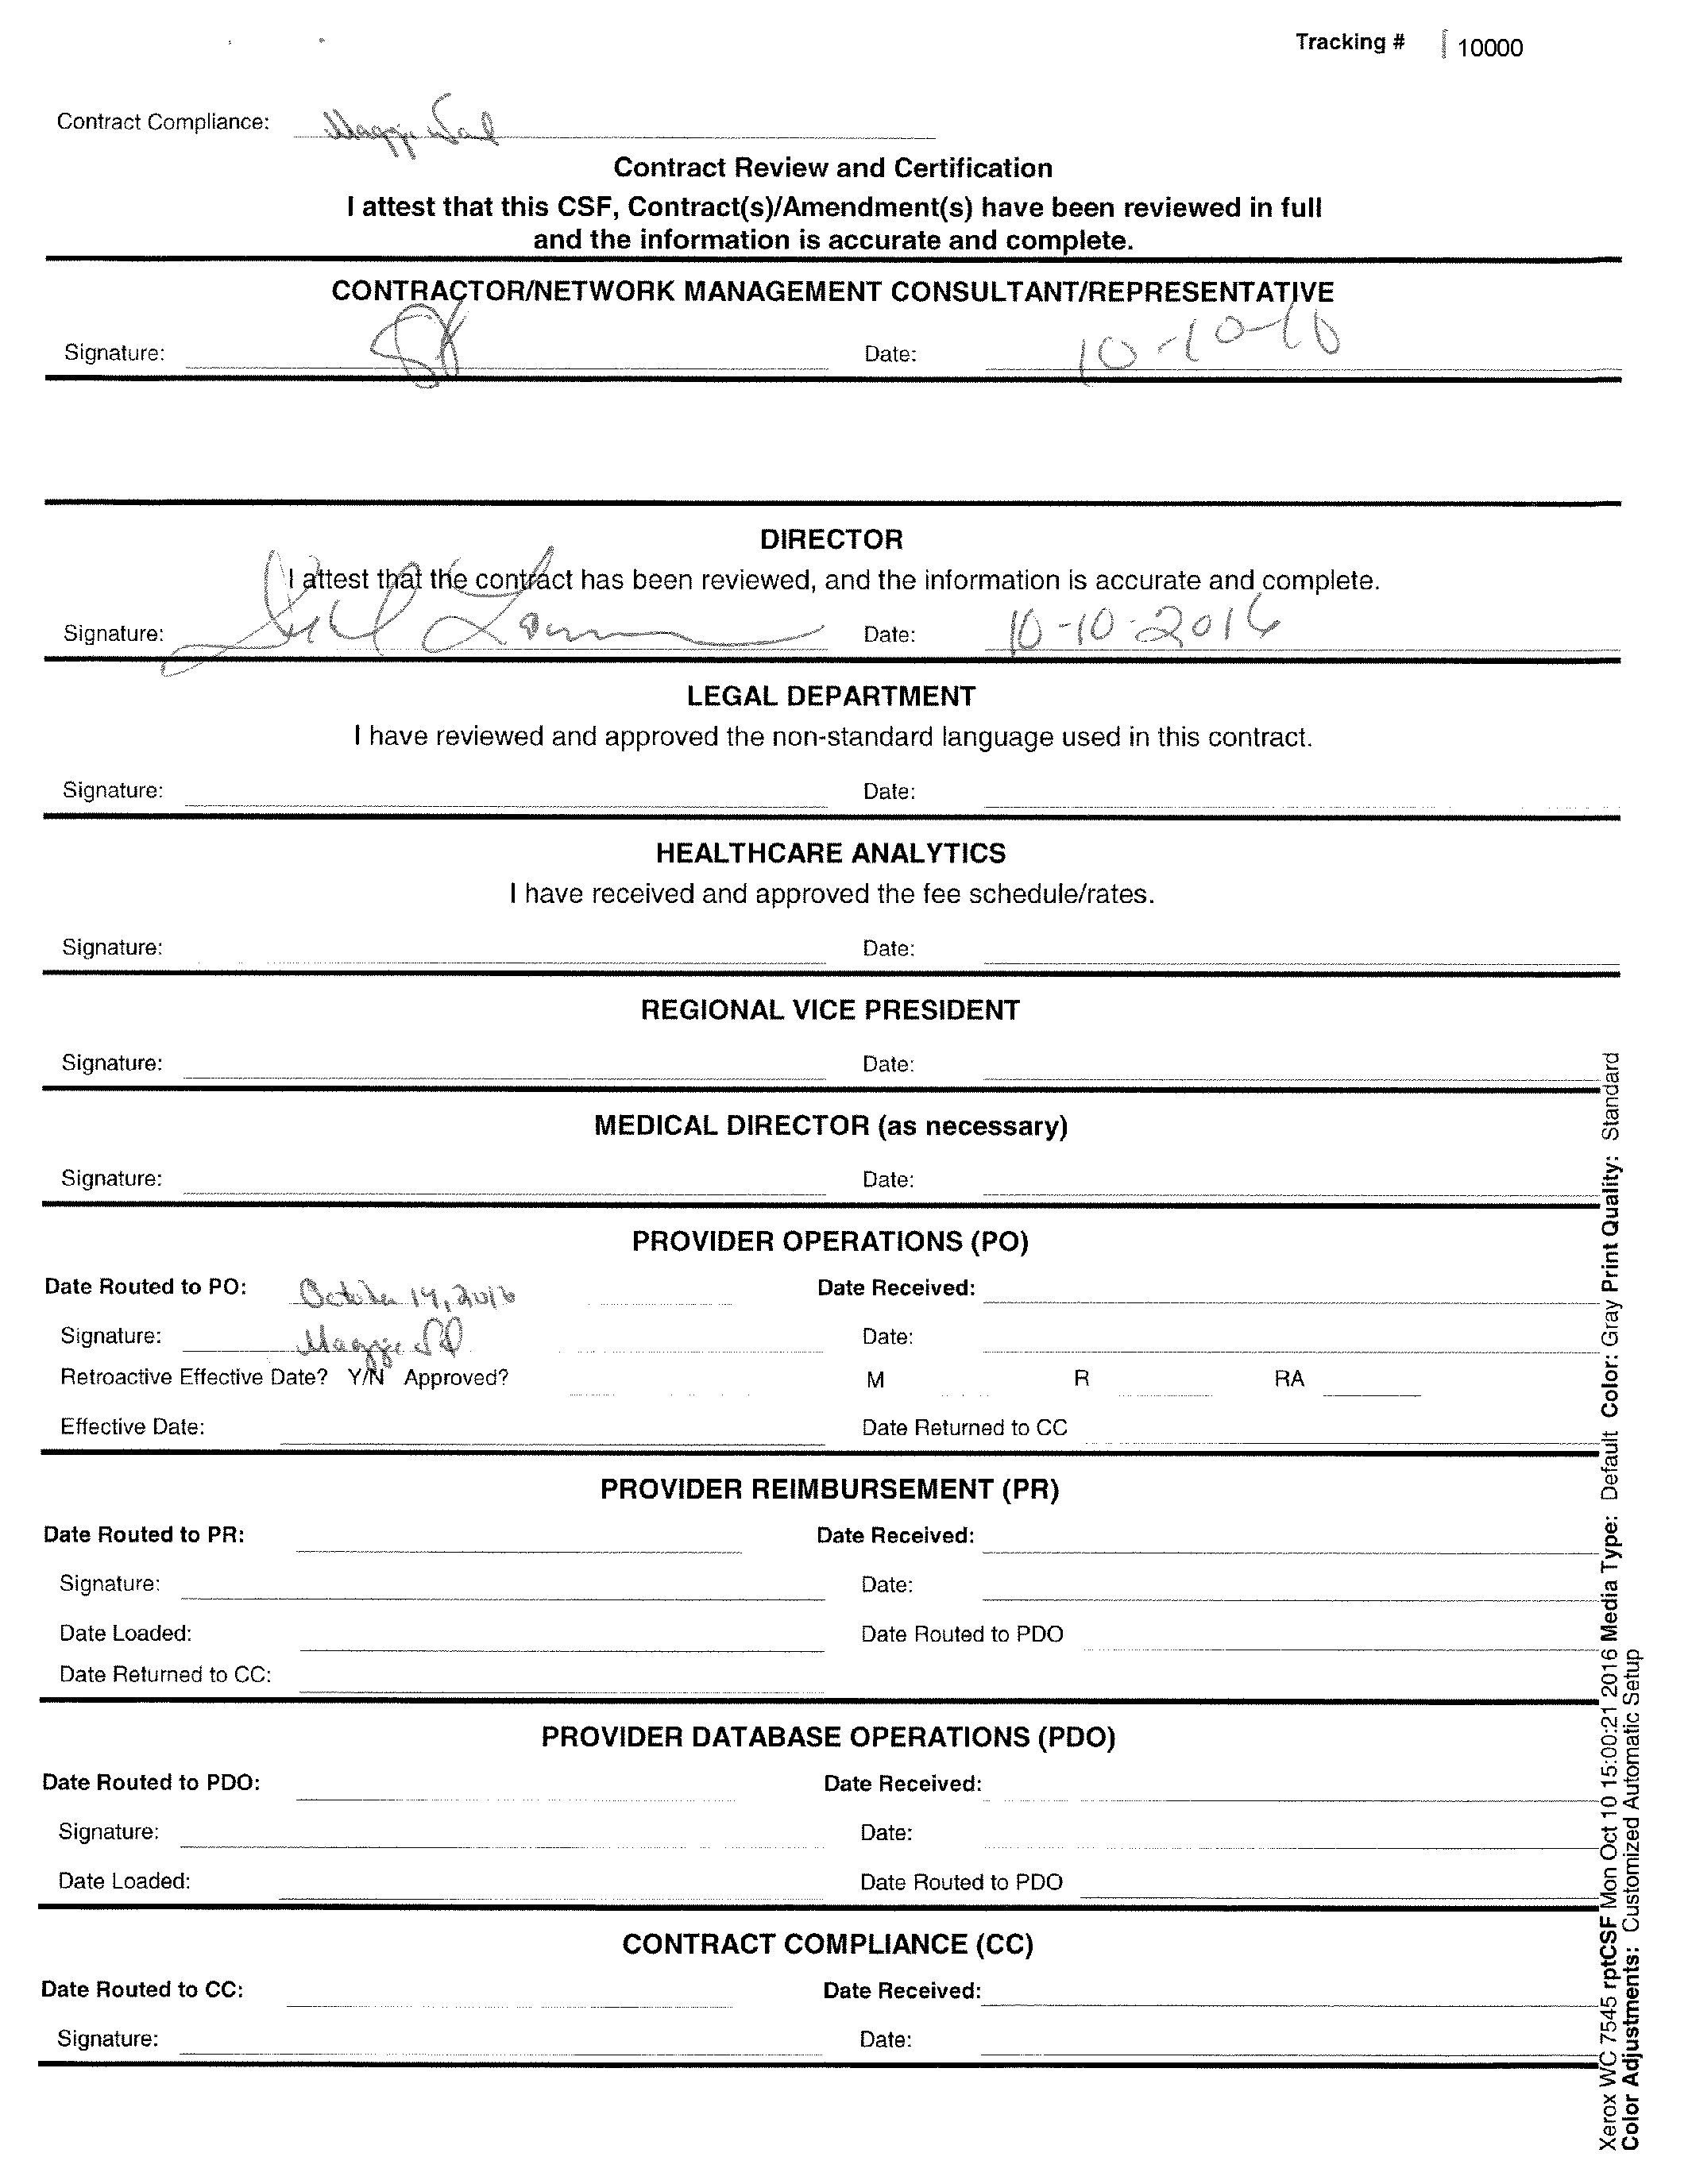 Tracking # 10000
Contract Compliance: Maggie
Contract Review and Certification
I attest that this CSF, Contract(s)/Amendment(s) have been reviewed in full
and the information is accurate and complete.
CONTRACTOR/NETWORK MANAGEMENT CONSULTANT/REPRESENTATIVE
Signature: Date: 10-10-16
DIRECTOR
I attest that the contract has been reviewed, and the information is accurate and complete.
Signature: Date: 10-10-2016
LEGAL DEPARTMENT
I have reviewed and approved the non-standard language used in this contract.
Signature: Date:
HEALTHCARE ANALYTICS
I have received and approved the fee schedule/rates.
Signature: Date:
REGIONAL VICE PRESIDENT
Signature: Date:
MEDICAL DIRECTOR (as necessary)
Signature: Date:
PROVIDER OPERATIONS (PO)
Date Routed to PO: October 14, 2016 Date Received:
Signature: Maggie Date:
Retroactive Effective Date? Y/N Approved? M R RA
Effective Date: Date Returned to CC
PROVIDER REIMBURSEMENT (PR)
Date Routed to PR: Date Received:
Signature: Date:
Date Loaded: Date Routed to PDO
Date Returned to CC:
PROVIDER DATABASE OPERATIONS (PDO)
Date Routed to PDO: Date Received:
Signature: Date:
Date Loaded: Date Routed to PDO
CONTRACT COMPLIANCE (CC)
Date Routed to CC: Date Received:
Signature: Date:
Xerox WC 7545 rptCSF Mon Oct 10 15:00:21 2016 Media Type: Default Color: Gray Print Quality: Standard
Color Adjustments: Customized Automatic Setup